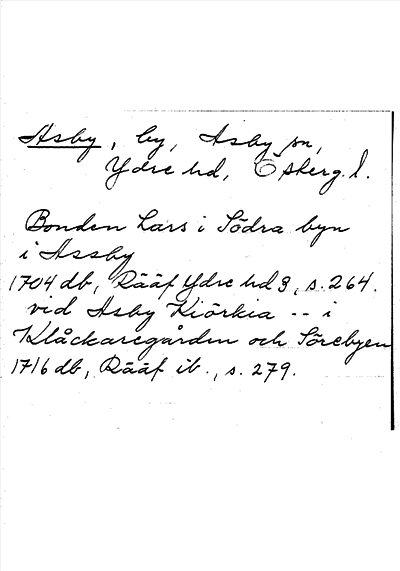 Asby, by, Asby sn,
Ydre hd, Österg. l.
Bonden Lars i Södra byn
i Assby
1704 db, Rääf Ydre hd 3, s. 264.
vid Asby Kiörkia -- i
Klåckaregården och Sörebyen
1716 db, Rääf ib., s. 279.